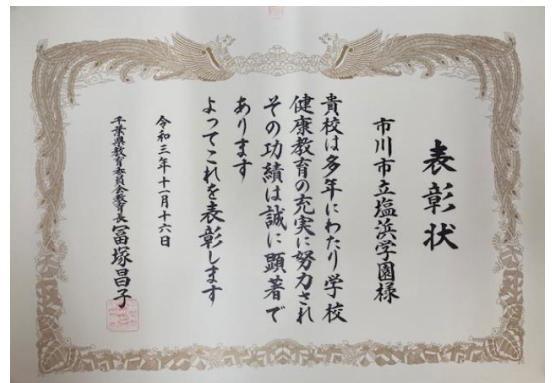 表彰状
市川市立塩浜学園様
貴校は多年にわたり学校
健康教育の充実に努力され
その功績は誠に顕著で
あります
よってこれを表彰します
令和三年十一月十六日
千葉県教育委員会教育長冨塚昌子